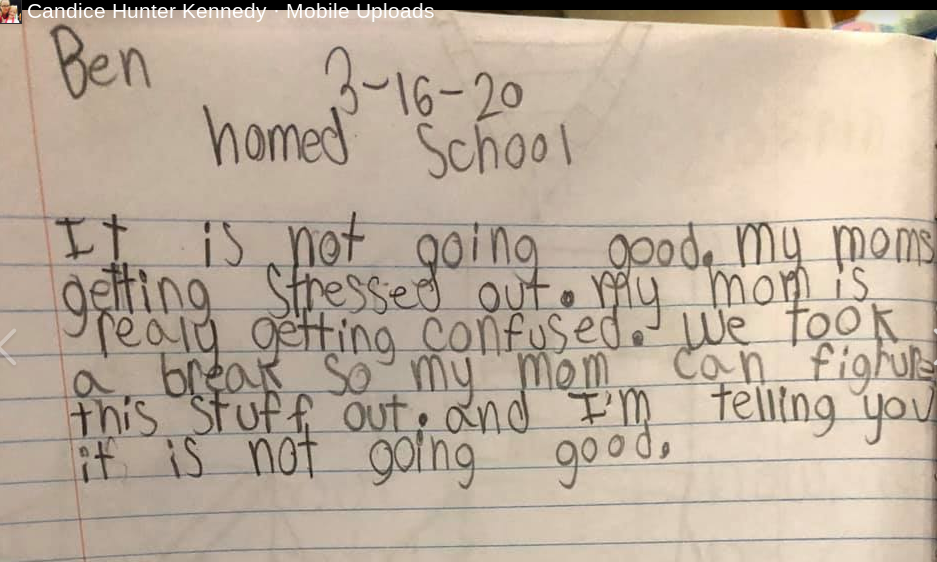 Candice Hunter Kennedy · Mobile Uploads
Ben
3-16-20
homed School
It is not going good. my moms
getting stressed out. My mom is
realy getting confused. We took
a break so my mom can fighure
this stuff out. and I'm telling you
it is not going good.